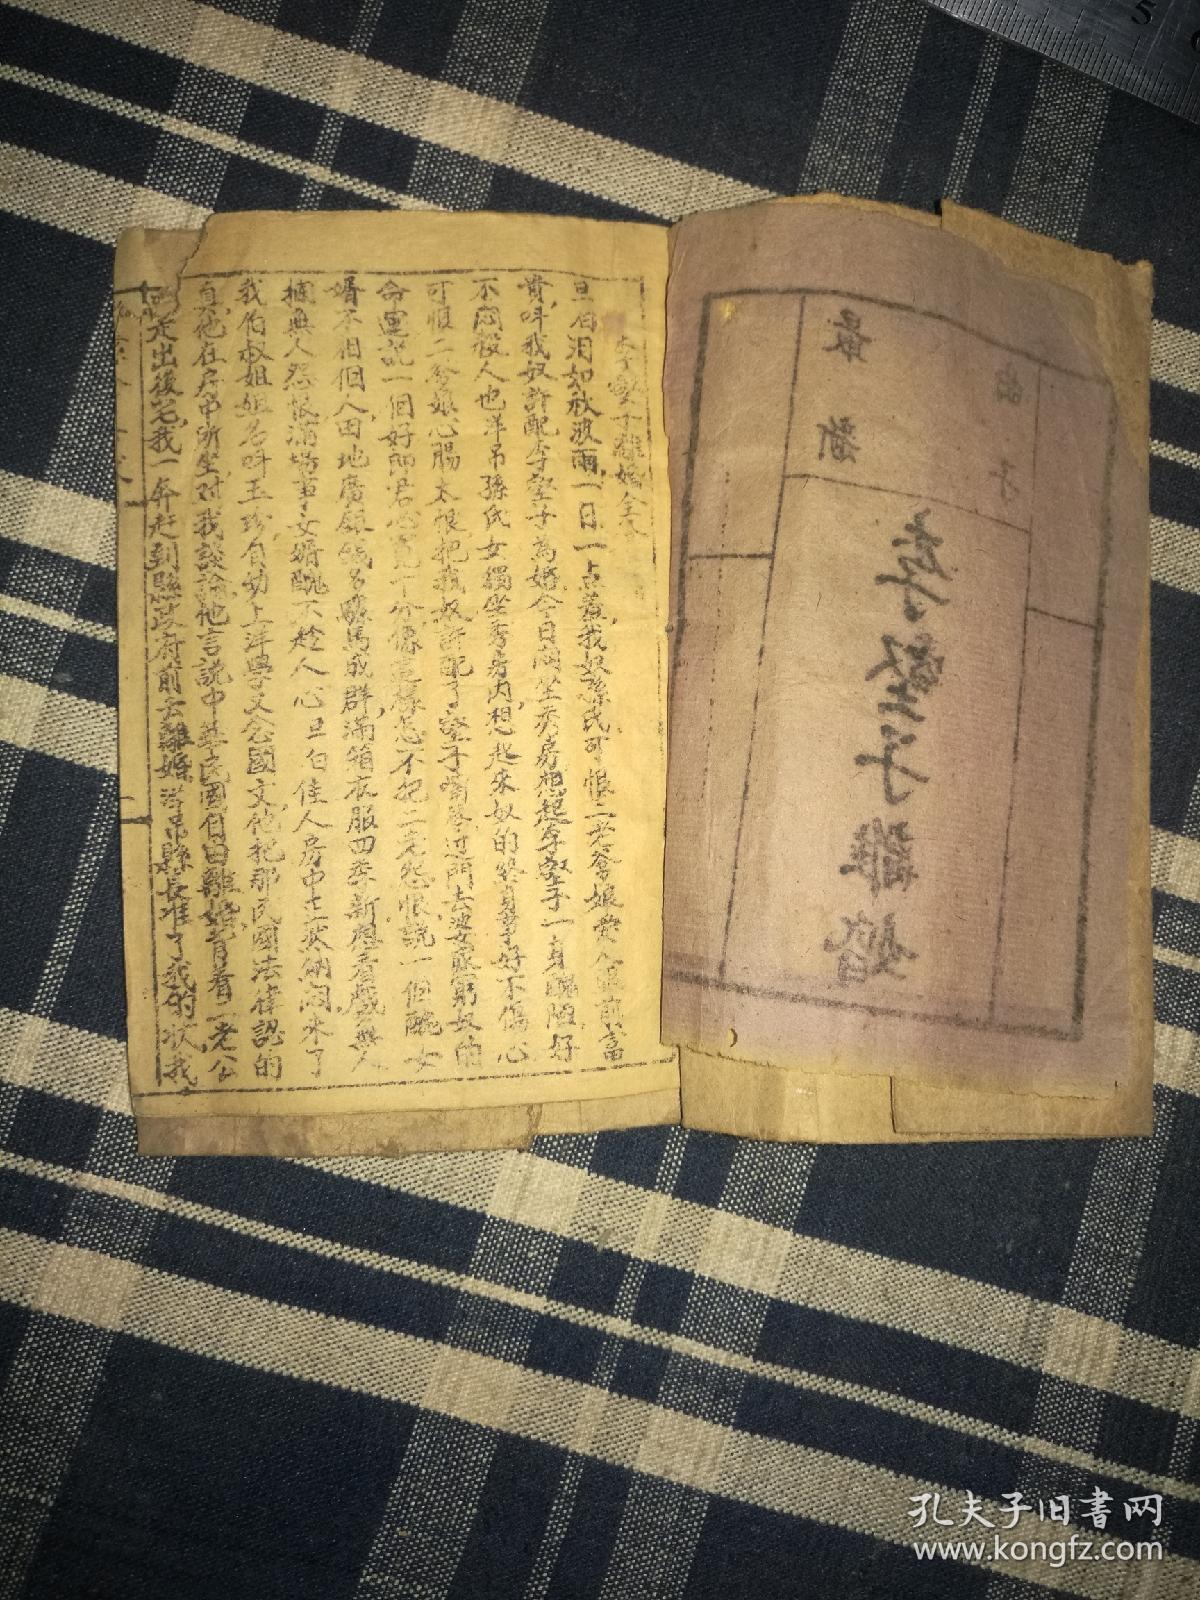 最新
曲子
李堅子離婚
李子堅子離婚全本
旦白淚如秋波雨一日一點羞我奴孫氏可恨二老爹娘愛人家前富
貴呌我奴許配李堅子為婚今日悶坐秀房想起李堅子一身醜陋好
不悶殺人也洋吊孫氏女獨坐秀房內想起來奴的終身事好不傷心
可恨二爹娘心腸太恨把我奴許配了堅子
過門去
奴的
命運説一個好郎君心寬十分像這樣怎不把二老怨恨説一個醜女
婿不相個人田地廣銀錢多騾馬成群滿箱衣服四季新想看戲無人
捕無人怨恨滿場事女婿醜不趁人心旦白佳人房中
納悶來了
我伯叔姐姐名呌玉珍自幼上洋學又念國文他把那民國法律認的
真他在房中所坐對我談論他言説中華民國自由離婚背着二老公
婆走出後宅我一奔赶到縣政府前去離婚洋吊縣長准了我的狀我
5
孔夫子旧书网
www.kongfz.com